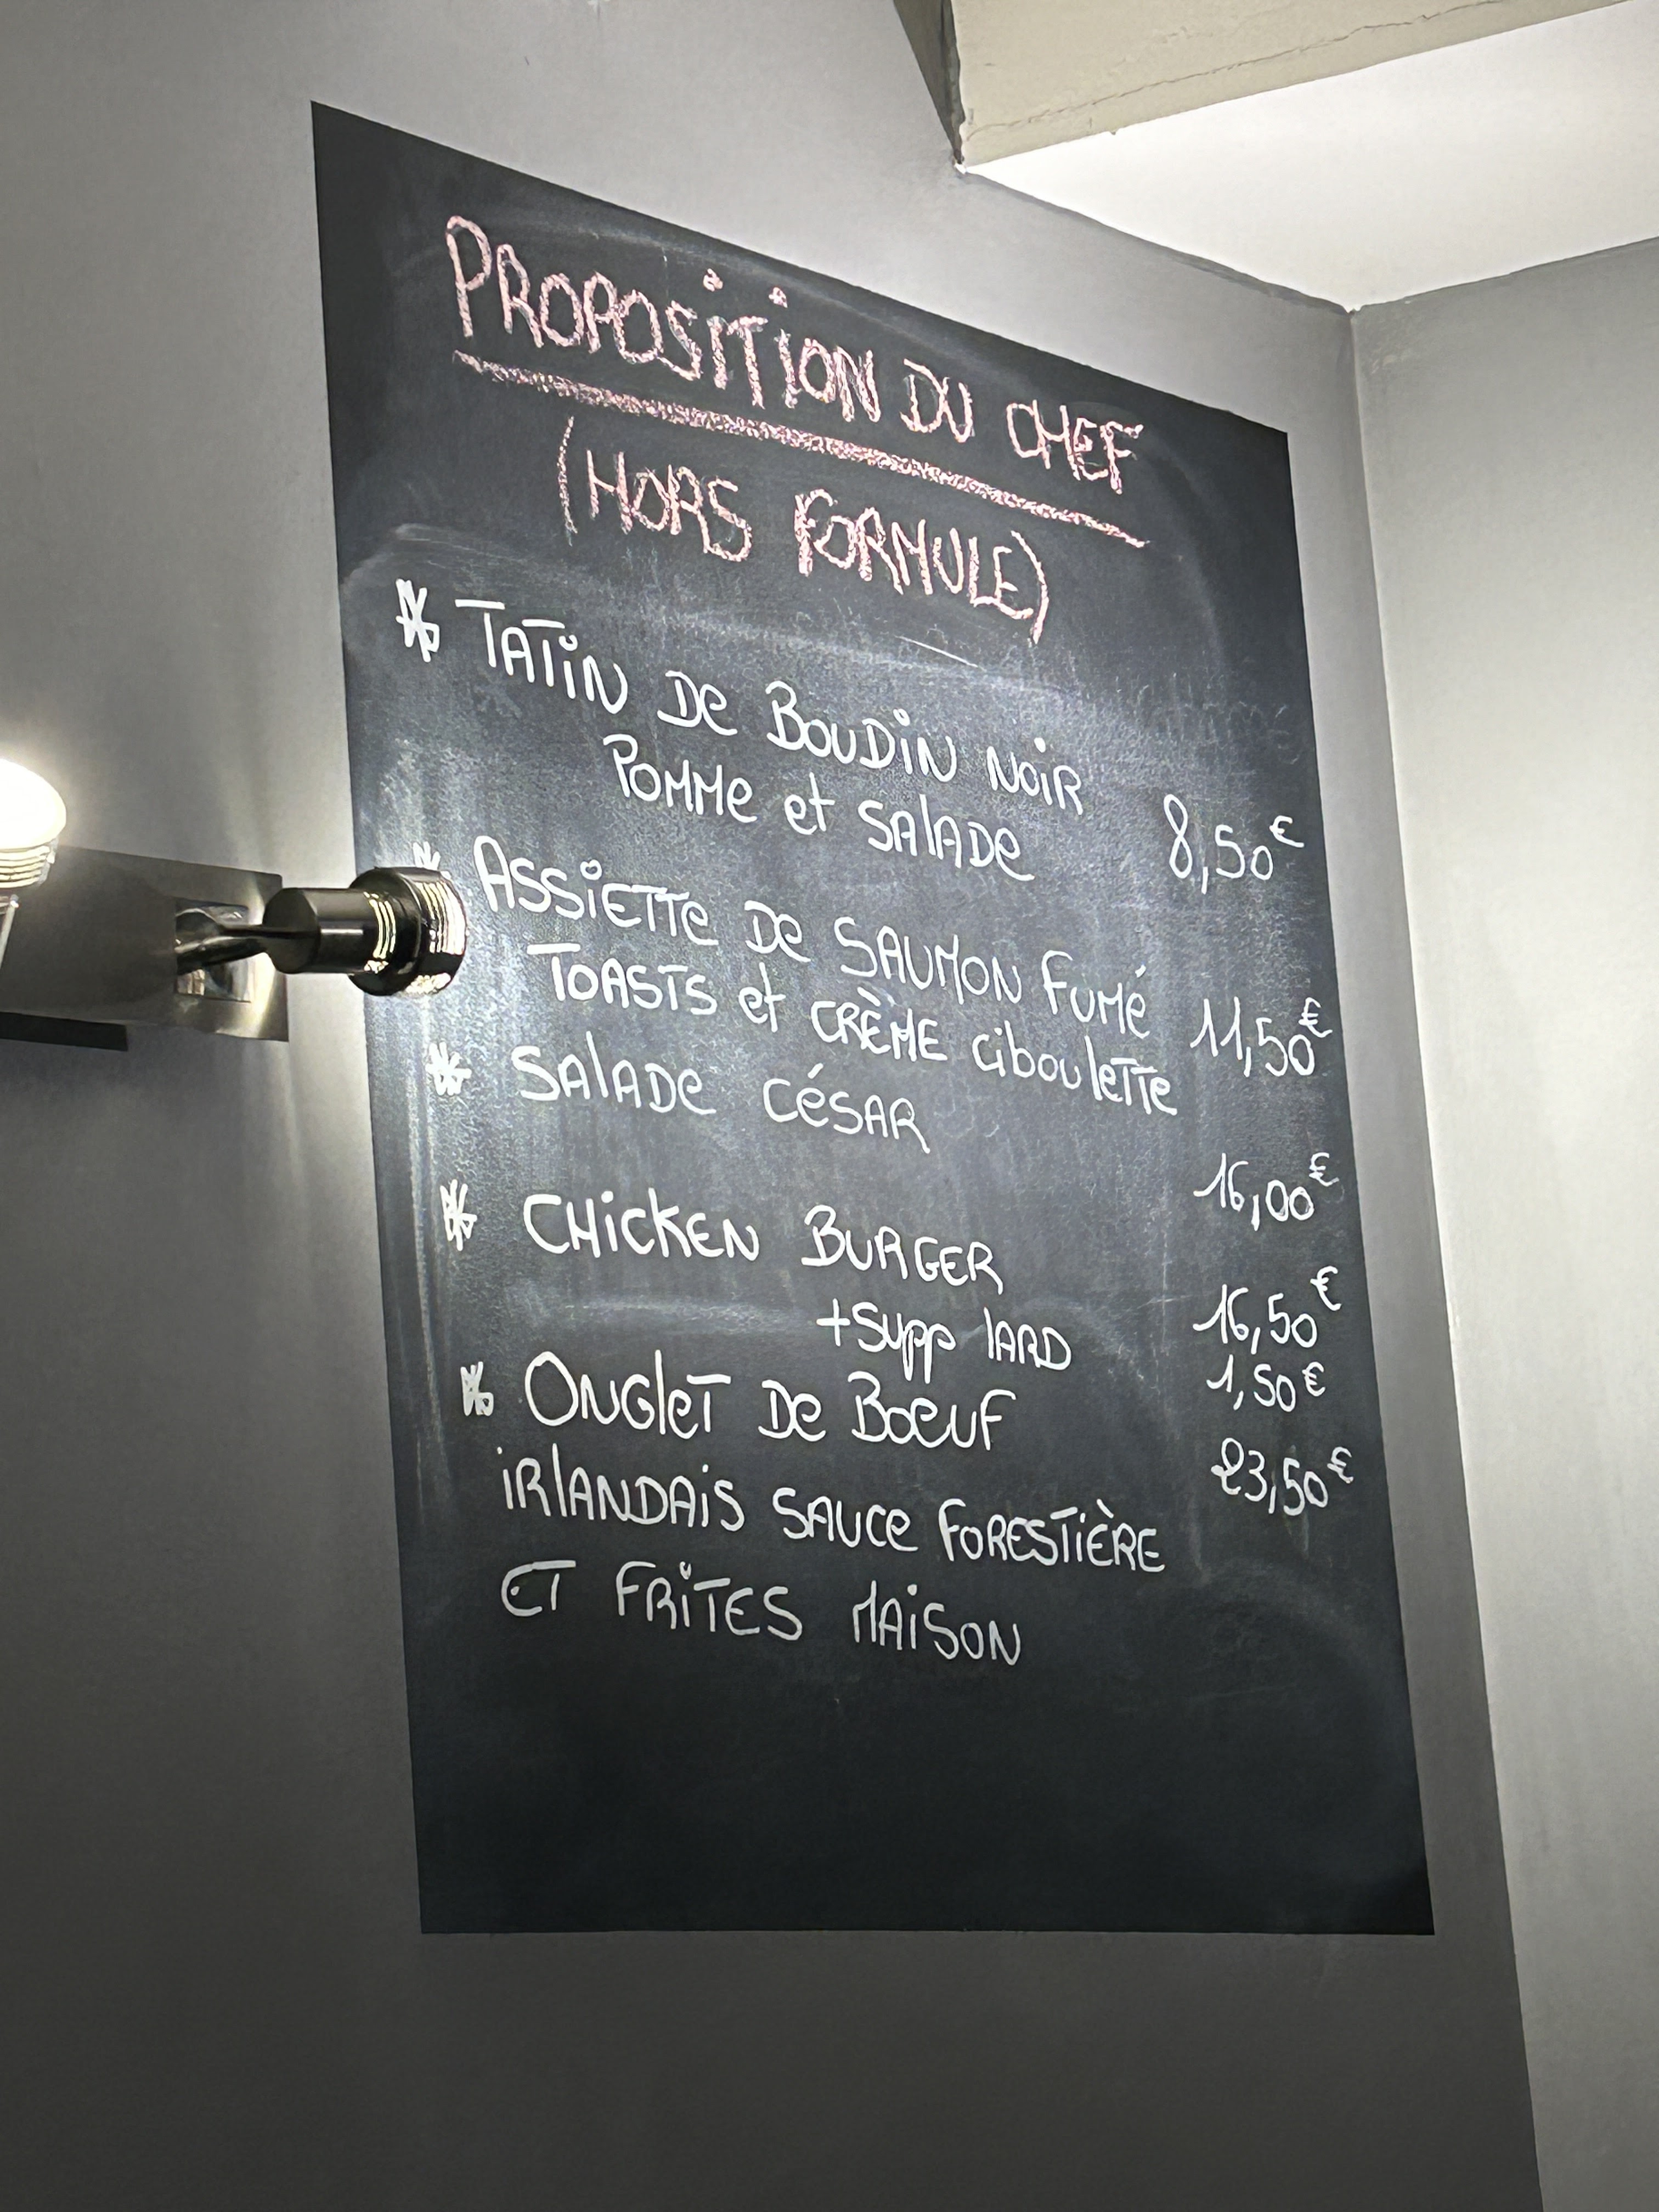 PROPOSITION DU CHEF
(HORS FORMULE)
* TATIN DE BOUDIN NOIR
POMME et SALADE 8,50€
* ASSIETTE DE SAUMON FUMÉ
TOASTS et CRÈME CIBOULETTE 11,50€
* SALADE CÉSAR 16,00€
* CHICKEN BURGER 16,50€
+SUPP LARD 1,50€
* ONGLET DE BOEUF 23,50€
IRLANDAIS SAUCE FORESTIÈRE
ET FRITES MAISON